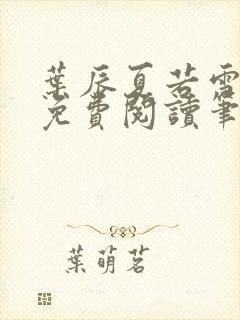 葉辰夏若雪
免費閱讀筆
葉萌茗